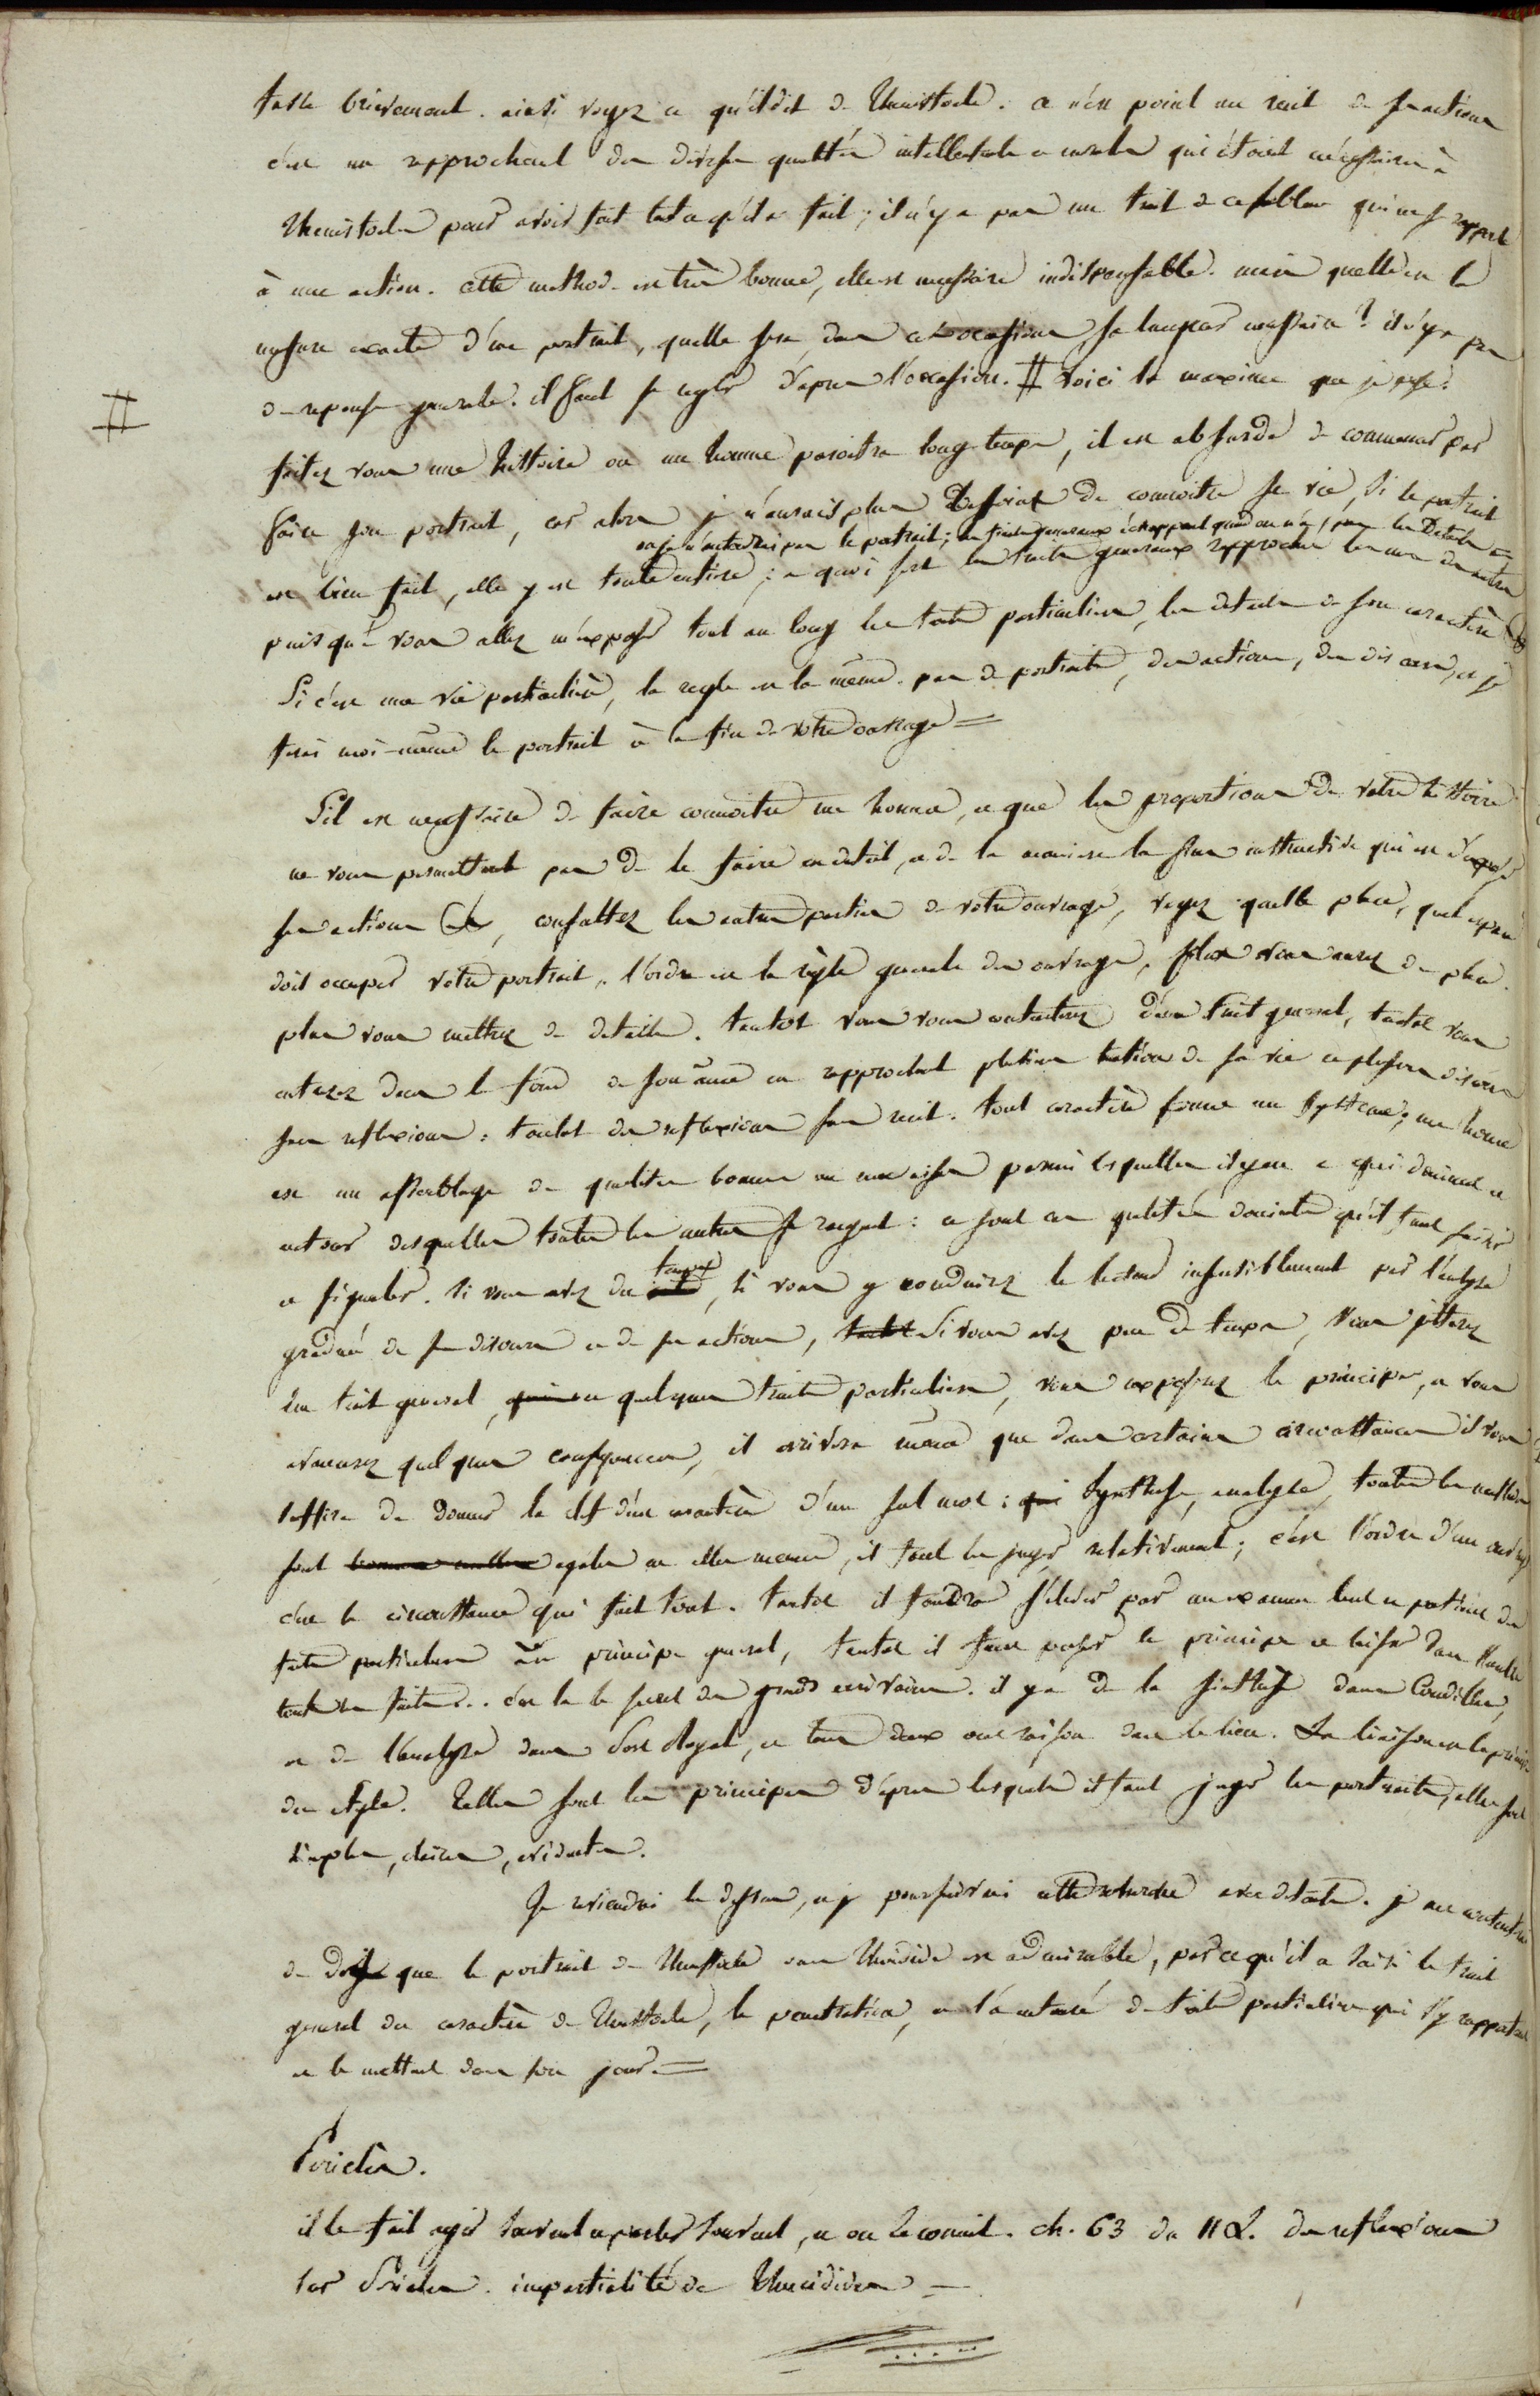 faste brievement. ainsi voyez ce qu'il dit de Themistocle. ce n'est point un recit de ses actions
c'est un rapprochant des diverses qualités intellectuelles et morales qui étoient nécessaires à
Themistocles pour avoir fait tout ce qu'il a fait ; il n'y a pas un trait de ce tableau qui ne se rapporte
à une action. cette methode est très bonne, elle est necessaire indispensable. mais quelle est la
mesure exacte d'un portrait, quelle sera dans ces occasions sa longueur necessaire ? il n'y a pas
de reponse generale. il faut se regler d'apres l'occasion. # Voici la maxime que je pose.
#
faites vous une histoire ou un homme paroitra long-temps, il est absurde de commencer par
faire son portrait, car alors je n'aurais plus besoin de connoitre sa vie, si le portrait
ou je n'entendrai pas le portrait ; les traits generaux échappent quand on n'a pas les Details
est bien fait, elle y est toute entiere ; a quoi sert les traits generaux rapprochés les uns des autres
puisque vous allez m'exposer tout au long les traits particuliers, les details de son caractère
Si c'est une vie particulière, la regle est la même. pas de portraits, des actions, des discours, et je
ferai moi-même le portrait à la fin de votre ouvrage =
S'il est necessaire de faire connoitre un homme, et que les proportions de votre histoire
ne vous permettent pas de le faire en detail, et de la maniere la plus instructive qui est d'exposer
ses actions &c, consultez les autres parties de votre ouvrage, voyez quelle place, quel espace
doit occuper votre portrait. l'ordre est la règle generale des ouvrages, plus vous aurez de place
plus vous mettrez de details. tantot vous vous contenterez d'un trait general, tantot vous
entrerez dans le fond de son ame en rapprochant plusieurs actions de sa vie et plusieurs discours
sans reflexions : tantot des reflexions sans recit. tout caractère forme un systeme ; un homme
est un assemblage de qualités bonnes ou mauvaises parmi lesquelles il y en a qui dominent et
autour desquelles toutes les autres se rangent : ce sont ces qualités dominantes qu'il faut saisir
et signaler. Si vous avez du temps, si vous y conduisez le lecteur insensiblement par l'analyse
graduée de ses discours et de ses actions, Si vous avez peu de temps, vous jetterez
un trait general, quelques traits particuliers, vous exposerez le principe, et vous
avancerez quelques consequences, il arrivera même que dans certaines circonstances il vous
suffira de donner la clef d'un caractère d'un seul mot : Synthese, analyse, toutes les methodes
sont egales en elles memes, il faut les juger relativement ; c'est l'ordre d'un ouvrage
c'est la circonstance qui fait tout. tantot il faudra s'élever par un examen lent et patient des
faits particuliers à un principe general, tantot il faut poser le principe et laisser dans l'ombre
tous les faits... c'est la le secret des grands ecrivains. il y a de la sinthese dans Condillac,
et de l'analyse dans Port Royal, et tous deux ont raison dans le lieu. La liaison est le premier
du style. Telles sont les principes d'apres lesquels il faut juger les portraits, elles sont
simples, claires, evidentes.
Je reviendrai la dessus, et je poursuivrai cette recherche avec details. je me contenterai
de dire que le portrait de Themistocle dans Thucidide est admirable, parce qu'il a saisi le trait
general du caractère de Themistocle, la penetration, et l'a entouré de traits particuliers qui s'y rapportent
et le mettent dans son jour. =
Periclès.
il le fait agir souvent et parler souvent, et on le connait. ch. 63 du II L. des reflexions
sur Pericles. impartialité de Thucidides —